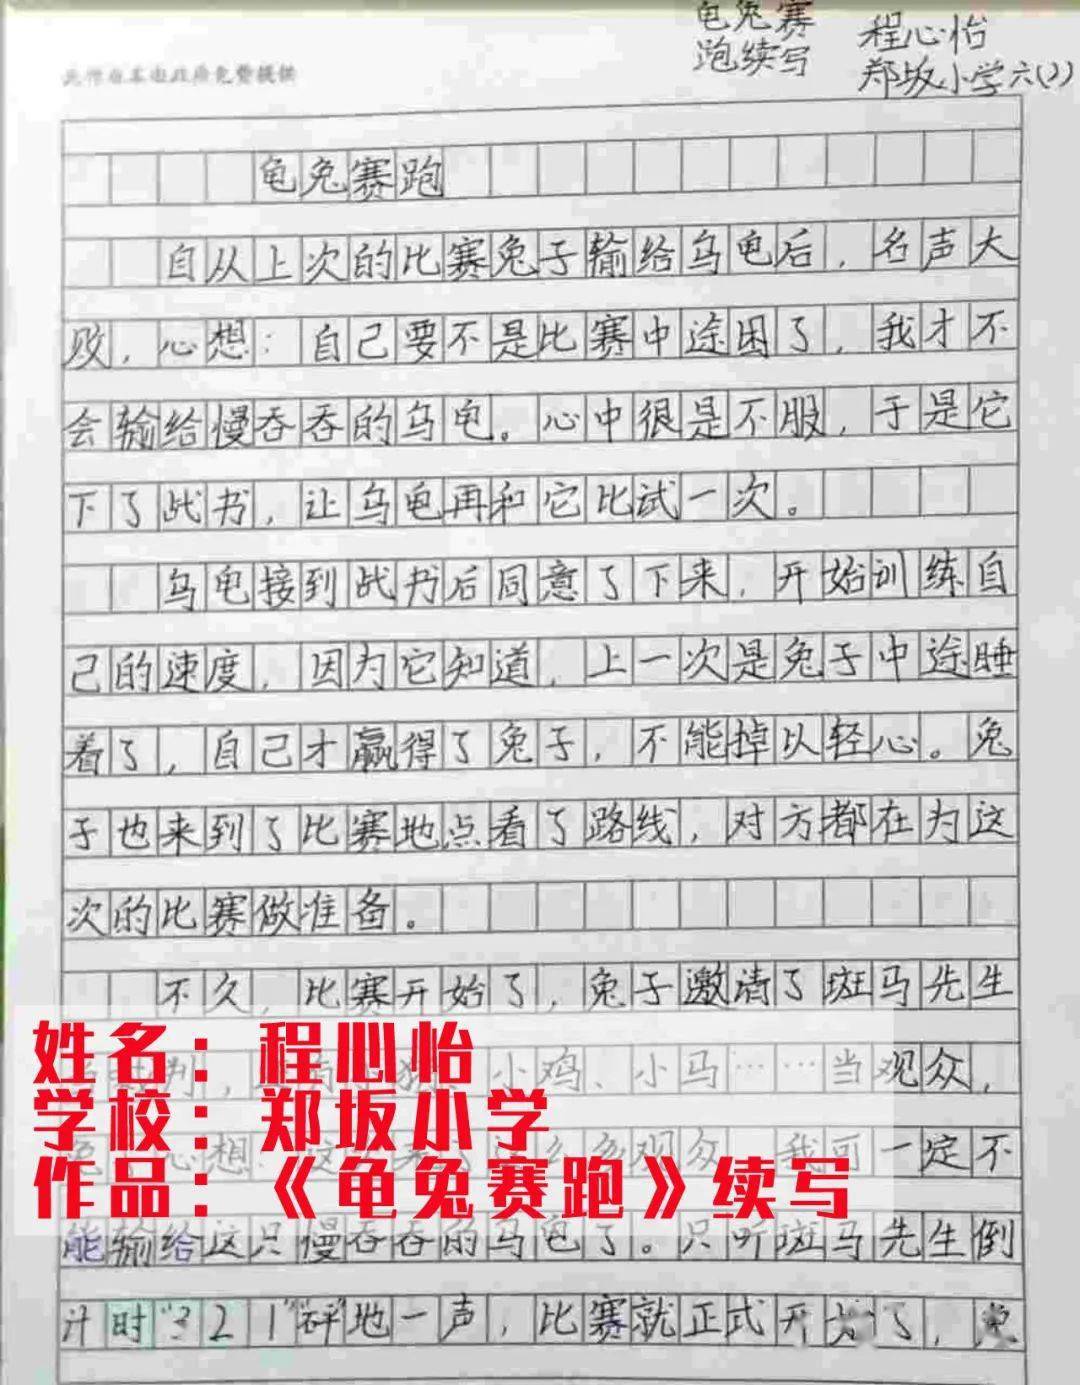 龟兔赛
跑续写
程心怡
郑坂小学六(2)
此作业本由政府免费提供
龟兔赛跑
自从上次的比赛兔子输给乌龟后，名声大
败，心想：自己要不是比赛中途困了，我才不
会输给慢吞吞的乌龟。心中很是不服，于是它
下了战书，让乌龟再和它比试一次。
乌龟接到战书后同意了下来，开始训练自
己的速度，因为它知道，上一次是兔子中途睡
着了，自己才赢得了兔子，不能掉以轻心。兔
子也来到了比赛地点看了路线，对方都在为这
次的比赛做准备。
不久，比赛开始了，兔子邀请了斑马先生
判，小鸡、小马……当观众，
心想：这么多观众，我可一定不
能输给这只慢吞吞的乌龟了。只听斑马先生倒
计时“321”“砰”地一声，比赛就正式开始了，兔
姓名：程心怡
学校：郑坂小学
作品：《龟兔赛跑》续写